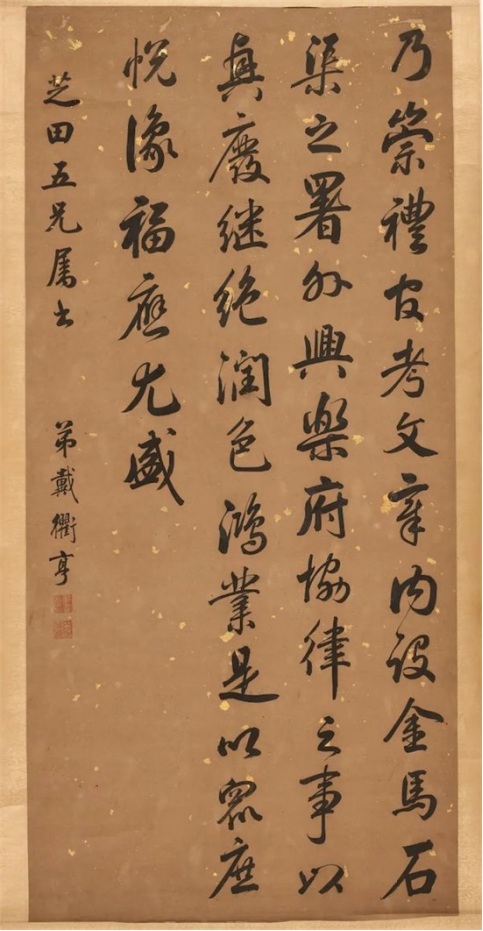 乃崇禮官考文章内設金馬石
渠之署外興樂府恊律之事以
興廢継絶潤色鴻業是以眾庶
悅豫福應尤盛
芝田五兄属書 弟戴衢亨